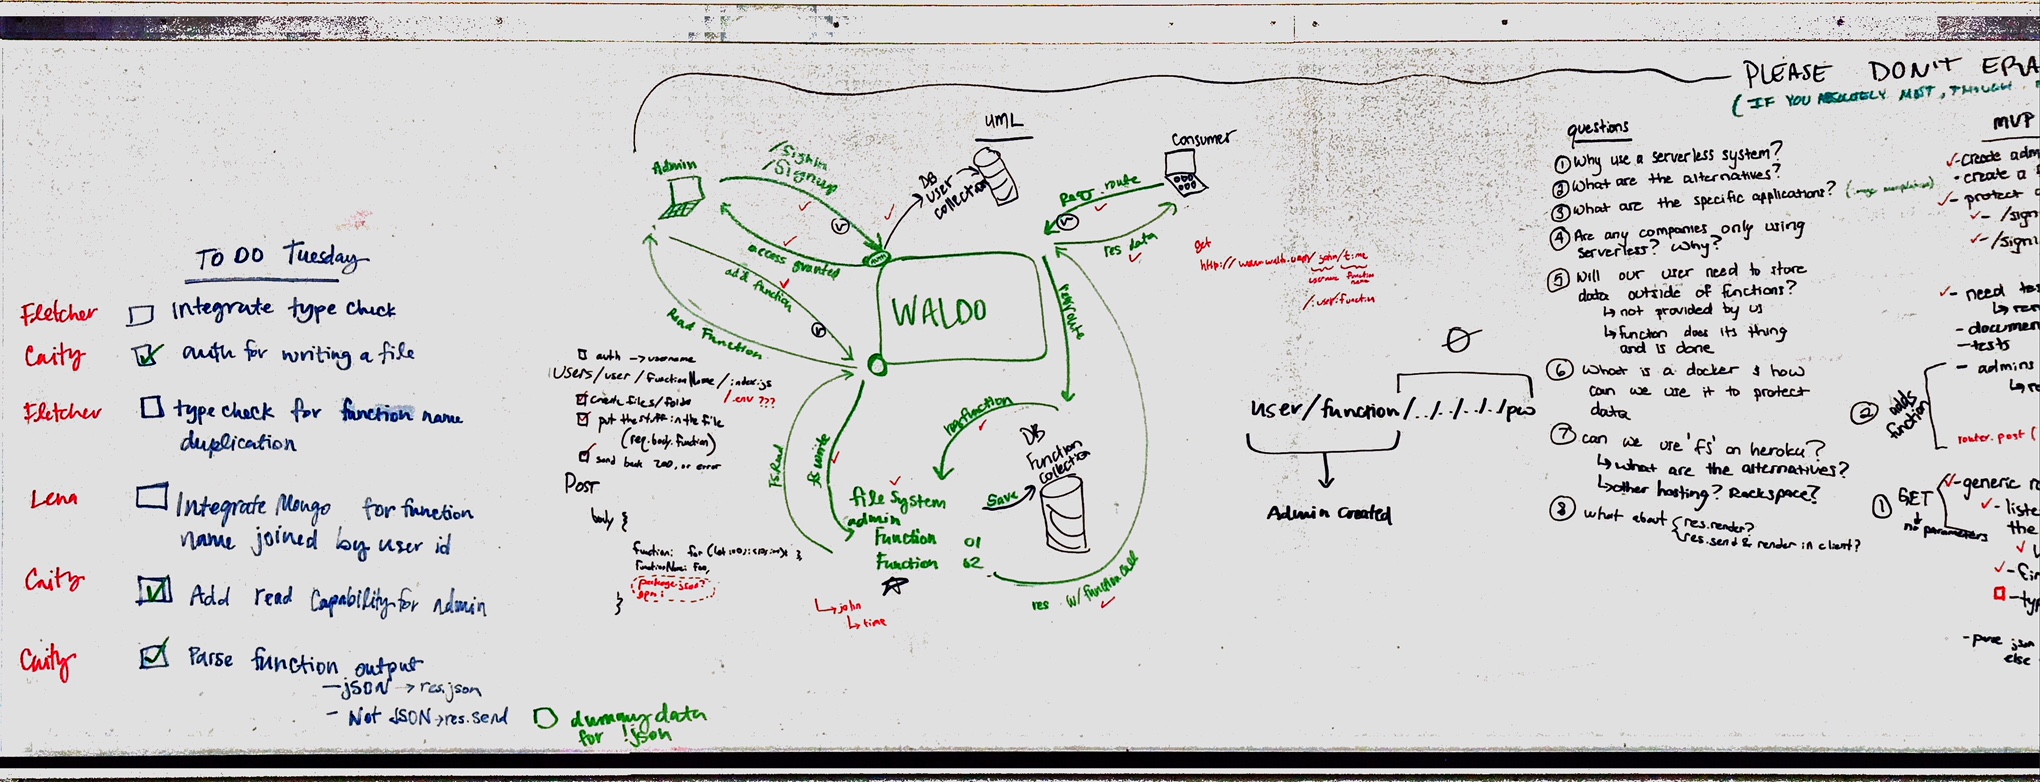 PLEASE DON'T ERA
(IF YOU ABSOLUTELY MUST, THOUGH
TO DO Tuesday
Fletcher Integrate type check
Caity auth for writing a file
Fletcher type check for function name
duplication
Lena Integrate Mongo for function
name joined by user id
Caity Add read capability for admin
Caity Parse function output
- JSON → res.json
- Not JSON → res.send
dummy data
for !json
UML
Admin
/signin
/signup
access granted
add function
Read Function
DB
user
collection
Consumer
req. route
res data
WALDO
req.route
get
john/time
username function
name
/:user:function
auth → username
Users/user/functionName/index.js
/.env ???
create files/folds
put the stuff in the file
(req.body.function)
send back 200, or error
Post
body {
function: for
functionName: foo,
package.json?
}
fs.Read
fs write
req function
DB
Function
Collection
file system
admin
Function 01
Function 02
save
res w/ function call
↳ john
↳ time
Ø
user/function/../../../../pw
Admin created
questions
① Why use a serverless system?
② What are the alternatives?
③ What are the specific applications?
④ Are any companies only using
serverless? Why?
⑤ Will our user need to store
data outside of functions?
↳ not provided by us
↳ function does its thing
and is done
⑥ What is a docker & how
can we use it to protect
data
⑦ can we use 'fs' on heroku?
↳ what are the alternatives?
↳ other hosting? Rackspace?
⑧ what about { res.render?
res.send & render in client?
MVP
- create adm
- create a
- protect
- /sign
- /signi
- need tes
- documen
- tests
- admins
② adds
function
router.post (
① GET
no parameters
- generic ro
- liste
the
- fin
- typ
- parse json
else